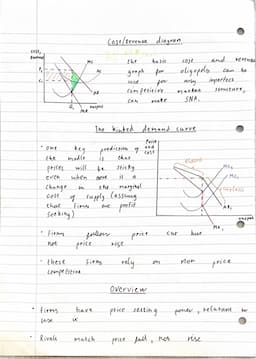 Cost/revenue diagram
cost,
revenue
MC
AC
P₁
C₁
AR
MR
Q₁
output
the basic cost and revenue
graph for oligopoly can be
use for any imperfect
competitive market structure,
can make SNP.
The kinked demand curve
* one key prediction of
the model is that
prices will be sticky
even when there is a
change in the marginal
cost of supply (assuming
that firms are profit
seeking)
Price
and
cost
elastic
MC₂
MC₁
inelastic
AR₁
MR₁
output
* firms follow price cut but
not price rise
* these firms rely on non price
competition
Overview
* firms have price setting power,
* Rivals match price fall, not rise